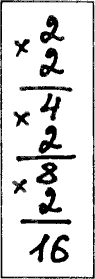 2
× 2
4
× 2
8
× 2
16